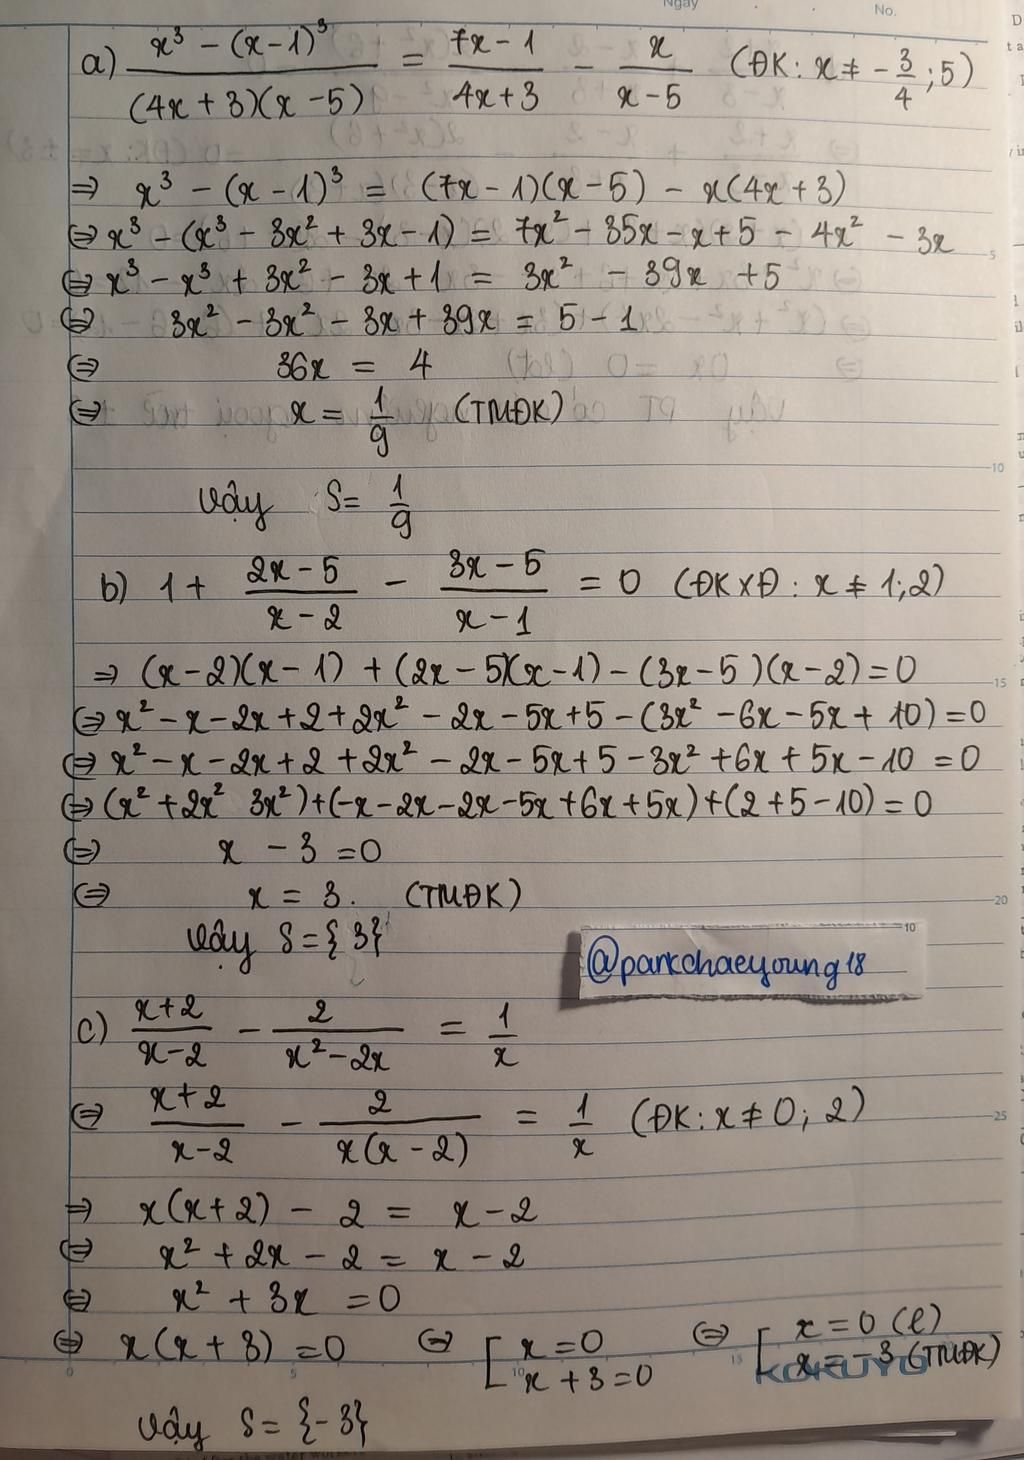 Ngày No.
a) \frac{x³ - (x-1)³}{(4x+3)(x-5)} = \frac{7x-1}{4x+3} - \frac{x}{x-5} (ĐK: x ≠ -\frac{3}{4}; 5)
⇒ x³ - (x-1)³ = (7x-1)(x-5) - x(4x+3)
⇔ x³ - (x³ - 3x² + 3x - 1) = 7x² - 35x - x + 5 - 4x² - 3x
⇔ x³ - x³ + 3x² - 3x + 1 = 3x² - 39x + 5
⇔ 3x² - 3x² - 3x + 39x = 5 - 1
⇔ 36x = 4
⇔ x = \frac{1}{9} (TMĐK)
Vậy S = \frac{1}{9}
b) 1 + \frac{2x-5}{x-2} - \frac{3x-5}{x-1} = 0 (ĐKXĐ: x ≠ 1; 2)
⇒ (x-2)(x-1) + (2x-5)(x-1) - (3x-5)(x-2) = 0
⇔ x² - x - 2x + 2 + 2x² - 2x - 5x + 5 - (3x² - 6x - 5x + 10) = 0
⇔ x² - x - 2x + 2 + 2x² - 2x - 5x + 5 - 3x² + 6x + 5x - 10 = 0
⇔ (x² + 2x² 3x²) + (-x - 2x - 2x - 5x + 6x + 5x) + (2 + 5 - 10) = 0
⇔ x - 3 = 0
⇔ x = 3. (TMĐK)
Vậy S = {3}
@parkchaeyoung18
c) \frac{x+2}{x-2} - \frac{2}{x²-2x} = \frac{1}{x}
⇔ \frac{x+2}{x-2} - \frac{2}{x(x-2)} = \frac{1}{x} (ĐK: x ≠ 0; 2)
⇒ x(x+2) - 2 = x - 2
⇔ x² + 2x - 2 = x - 2
⇔ x² + 3x = 0
⇔ x(x+3) = 0 ⇔ [ x = 0 ; x + 3 = 0 ⇔ [ x = 0 (l) ; x = -3 (TMĐK)
KOKUYO
Vậy S = {-3}